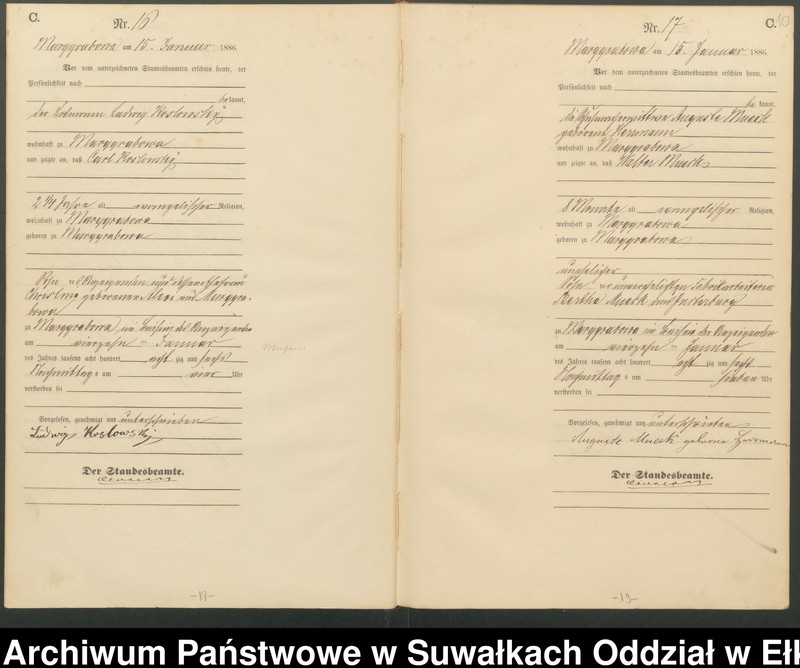 C.
Nr. 16
Marggrabowa am 15. Januar 1886.
Vor dem unterzeichneten Standesbeamten erschien heute, der
Persönlichkeit nach
bekannt,
der Ludwig Koslowsky
wohnhaft zu Marggrabowa
und zeigte an, daß Carl Koslowsky
2 1/4 Jahre alt evangelischer Religion,
wohnhaft zu Marggrabowa
geboren zu Marggrabowa
Sohn des Anzeigenden und dessen Ehefrau
Christine geborenen aus Marggra-
bowa
zu Marggrabowa im Beisein des Anzeigenden
am vierzehn Januar
des Jahres tausend acht hundert acht zig und sechs
Nachmittag s um vier Uhr
verstorben sei
Vorgelesen, genehmigt und unterschrieben
Ludwig Koslowsky
Der Standesbeamte.
-18-
C.
Nr. 17
Marggrabowa am 15. Januar 1886.
Vor dem unterzeichneten Standesbeamten erschien heute, der
Persönlichkeit nach
be kannt,
die Auguste Mueck
geborene Herrmann
wohnhaft zu Marggrabowa
und zeigte an, daß Walter Mueck
8 Monate alt evangelischer Religion,
wohnhaft zu Marggrabowa
geboren zu Marggrabowa
unehelicher
Sohn der unverehelichten Fabrikarbeiterin
Bertha Mueck aus Insterburg
zu Marggrabowa im Beisein der Anzeigenden
am vierzehn Januar
des Jahres tausend acht hundert acht zig und sechs
Nachmittag s um sieben Uhr
verstorben sei
Vorgelesen, genehmigt und unterschrieben
Auguste Mueck geborene Herrmann
Der Standesbeamte.
-19-
Archiwum Państwowe w Suwałkach Oddział w Eł